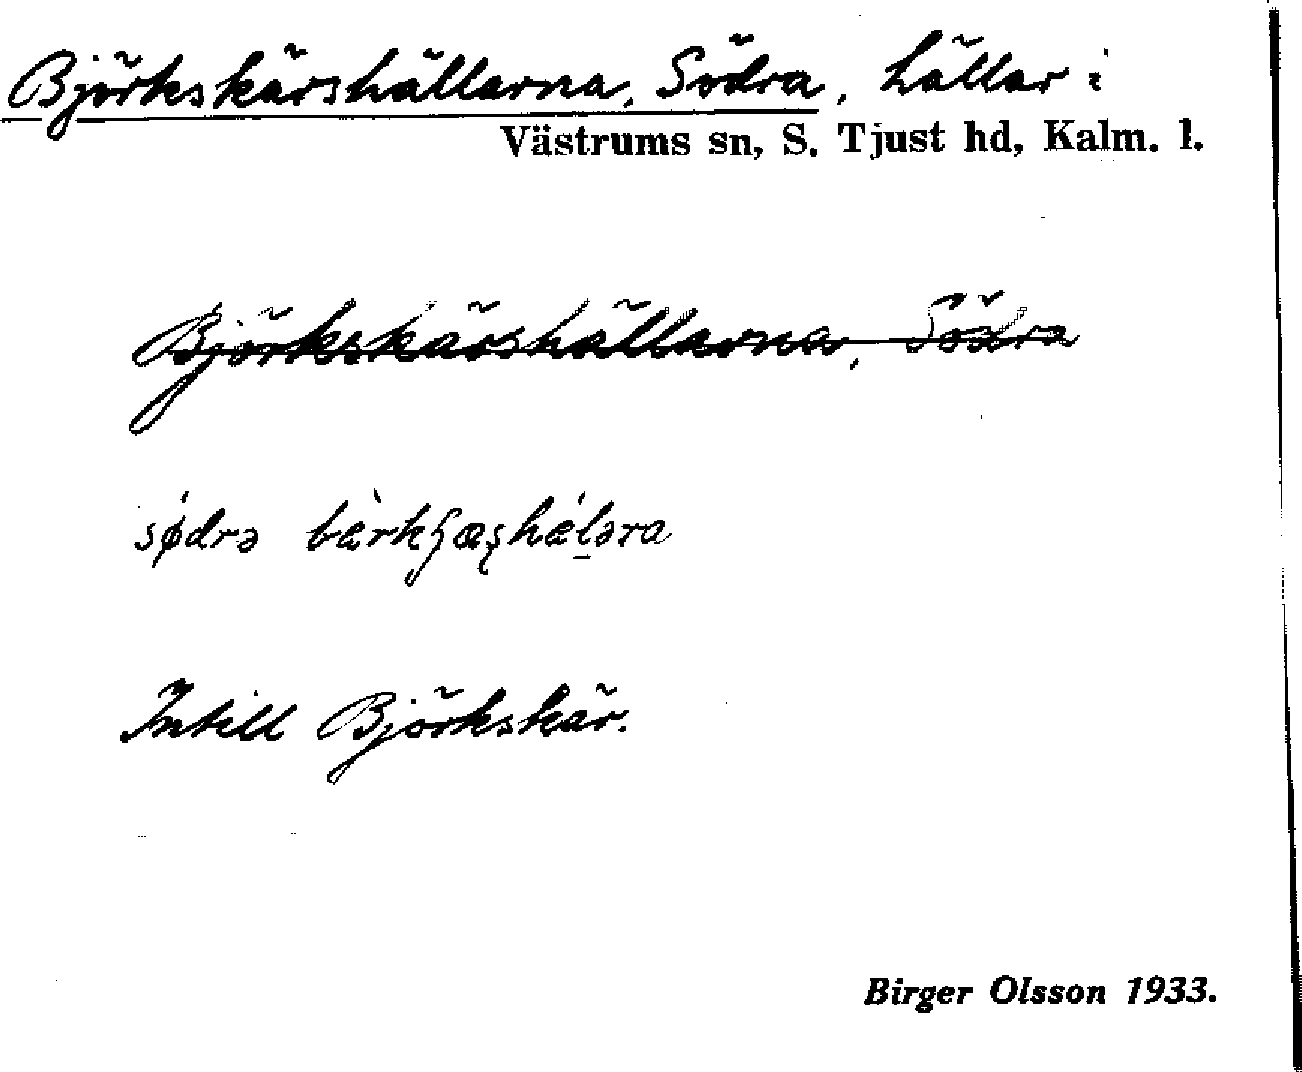 Björkskärshällarna, Södra, hällar i
Västrums sn, S. Tjust hd, Kalm. l.
Björkskärshällarna, Södra
sǿdrə
Intill Björkskär.
Birger Olsson 1933.